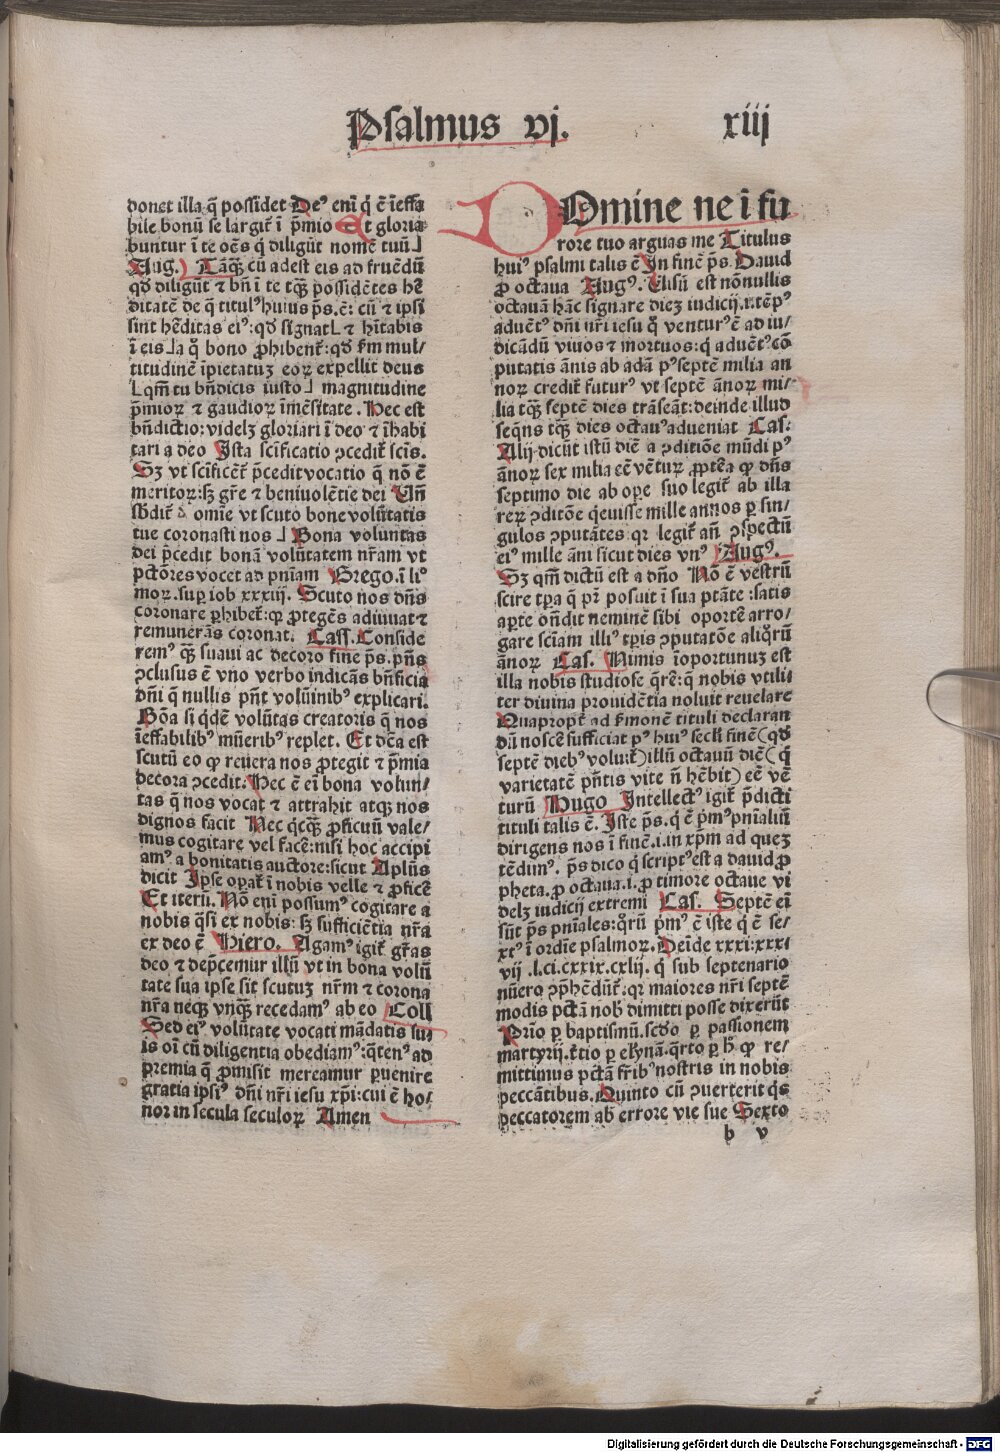 Psalmus vj.
xiij
donet illa q̄ possidet De⁹ enī q̇ ē īeffa
bile bonū se largit̄ ī p̄mio Et gloria
buntur ī te oēs q̇ diligūt nomē tuū⅃
Aug. Tāqȝ cū adest eis ad fruēdū
qd̄ diligūt ⁊ bn̄ ī te tqȝ possidētes hē
ditatē de q̄ titul⁹huius ps̄.ē: cū ⁊ ipsi
sint hēditas ei⁹:qd̄ signat⅃ ⁊ hītabis
ī eis⅃a q̊ bono ꝓhibent̄:qd̄ ẜm mul/
titudinē īpietatuȝ eoꝝ expellit deus
⅃qm̄ tu bn̄dicis iusto⅃ magnitudine
p̄mioꝝ ⁊ gaudioꝝ īmēsitate. Hec est
bn̄dictio: videlȝ gloriari ī deo ⁊ īhabi
tari a deo Ista sc̄ificatio ꝓcedit̄ sc̄is.
Sȝ vt sc̄ificet̄ p̄cedit vocatio q̄ nō ē
meritoꝝ:sȝ gr̄e ⁊ beniuolētie dei Un̄
sbdit̄ dn̄e vt scuto bone volūtatis
tue coronasti nos⅃ Bona voluntas
dei p̄cedit bonā volūtatem nr̄am vt
pctōres vocet ad pn̄iam Grego.ī li⁰
moꝝ.sup iob xxxiij. Scuto nos dn̄s
coronare ꝑhibet̄:qꝫ ꝓtegēs adiuuat ⁊
remunerās coronat. Cass. Conside
rem⁹ qȝ suaui ac decoro fine ps̄.pn̄s
ↄclusus ē vno verbo indicās bn̄ficia
dn̄i q̄ nullis pn̄t volūinib⁹ explicari.
Bōa si q̇dē volūtas creatoris q̄ nos
īeffabilib⁹ mūerib⁹ replet. Et dc̄a est
scutū eo ꝙ reuera nos ꝓtegit ⁊ p̄mia
decora ↄcedit. Hec ē eī bona volun/
tas q̄ nos vocat ⁊ attrahit atqȝ nos
dignos facit Nec q̇cqȝ ꝓficuū vale/
mus cogitare vel facē:nisi hoc accipi
am⁹ a bonitatis auctore:sicut Aplūs
dicit Ipse opat̄ ī nobis velle ⁊ ꝓficē
Et iterū. Nō enī possum⁹ cogitare a
nobis q̄si ex nobis: sȝ sufficiētia nr̄a
ex deo ē Hiero. Agam⁹ igit̄ gr̄as
deo ⁊ dep̄cemur illū vt in bona volū
tate sua ipse sit scutuȝ nr̄m ⁊ corona
nr̄a neqȝ vnqȝ recedam⁹ ab eo Coll
Sed ei⁹ volūtate vocati mādatis su/
is oī cū diligentia obediam⁹:q̄ten⁹ ad
premia q̄ ꝓmisit mereamur ꝑuenire
gratia ipsi⁹ dn̄i nr̄i iesu xp̄i:cui ē ho/
nor in secula seculoꝝ Amen
DOmine ne ī fu
rore tuo arguas me Titulus
hui⁹ psalmi talis ē In finē ps̄. Dauid
ꝓ octaua Aug⁹. Uisū est nōnullis
octauā hāc signare dieȝ iudicij.i.tēp⁹
aduēt⁹ dn̄i nr̄i iesu q̇ ventur⁹ē ad iu/
dicādū viuos ⁊ mortuos:q̇ aduēt⁹cō
putatis ānis ab adā p⁹septē milia an
noꝝ credit̄ futur⁹ vt septē ānoꝝ mi/
lia tqȝ septē dies trāseāt:deinde illud
seq̄ns tqȝ dies octau⁹adueniat Cas.
Alij dicūt istū diē a ↄditiōe mūdi p⁹
ānoꝝ sex milia eē vētuꝝ ꝓptēa ꝙ dn̄s
septimo die ab oꝑe suo legit̄ ab illa
reꝝ ↄditōe q̇euisse mille annos ꝑ sin/
gulos ↄputātes qꝛ legit̄ an̄ ↄspectū
ei⁹ mille āni sicut dies vn⁹ Aug⁹.
Sȝ qm̄ dictū est a dn̄o Nō ē vestrū
scire tp̄a q̄ pr̄ posuit ī sua ptāte :satis
aꝑte on̄dit neminē sibi oportē arro/
gare sciam illi⁹ tp̄is ↄputatōe aliq̊rū
ānoꝝ Cas. Nimis īoportunuȝ est
illa nobis studiose q̄rē:q̄ nobis vtili/
ter diuina prouidētia noluit reuelare
Quapropt̄ ad ẜmonē tituli declaran
dū noscē sufficiat p⁹ hui⁹ seclī finē(qd̄
septē dieb⁹ volut̄)illū octauū diē(q̇
varietatē pn̄tis vite n̄ hēbit)eē vē
turū Hugo Intellect⁹ igit̄ p̄dicti
tituli talis ē. Iste ps̄.q̇ ē p̄m⁹pn̄ialiū
dirigens nos ī finē.i.in xp̄m ad queȝ
tēdim⁹. ps̄ dico q̇ script⁹est a dauid ꝓ
pheta.ꝓ octaua.i.ꝓ timore octaue vi
delȝ iudicij extremi Cas. Septē eī
sūt ps̄ pn̄iales:q̊rū p̄m⁹ ē iste q̇ ē se/
xt⁹ ī ordīe psalmoꝝ. Deīde xxxi:xxx/
vij .l.ci.cxxix.cxlij. q̇ sub septenario
nūero ↄp̄hēdūt̄:qꝛ maiores nr̄i septē
modis pctā nob̄ dimitti posse dixerūt
Prīo ꝑ baptismū.scd̄o ꝑ passionem
martyrij.t̄tio ꝑ elynā.q̄rto ꝑ h̄ ꝙ re/
mittimus pctā fr̄ib⁹nostris in nobis
peccātibus.Quinto cū ↄuerterit q̇s
peccatorem ab errore vie sue Sexto
b v
Digitalisierung gefördert durch die Deutsche Forschungsgemeinschaft - DFG